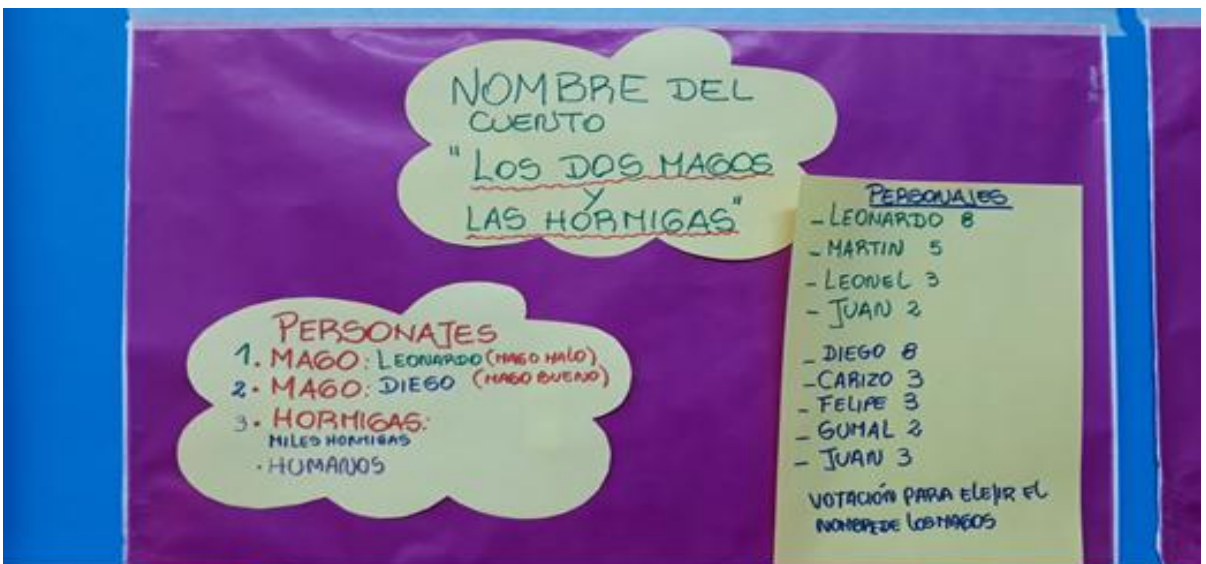 NOMBRE DEL
CUENTO
"LOS DOS MAGOS
Y
LAS HORMIGAS"
PERSONAJES
1. MAGO: LEONARDO (MAGO MALO)
2. MAGO: DIEGO (MAGO BUENO)
3. HORMIGAS:
MILES HORMIGAS
. HUMANOS
PERSONAJES
- LEONARDO 8
- MARTIN 5
- LEONEL 3
- JUAN 2
- DIEGO 8
- CARIZO 3
- FELIPE 3
- GUMAL 2
- JUAN 3
VOTACIÓN PARA ELEJIR EL
NOMBRE DE LOS MAGOS